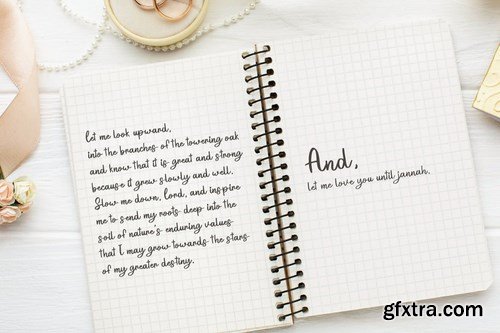 Let me look upward,
into the branches of the towering oak
and know that it is great and strong
because it grew slowly and well.
Slow me down, Lord, and inspire
me to send my roots deep into the
soil of nature's enduring values
that I may grow towards the stars
of my greater destiny.
And,
let me love you until jannah.
gfxtra.com